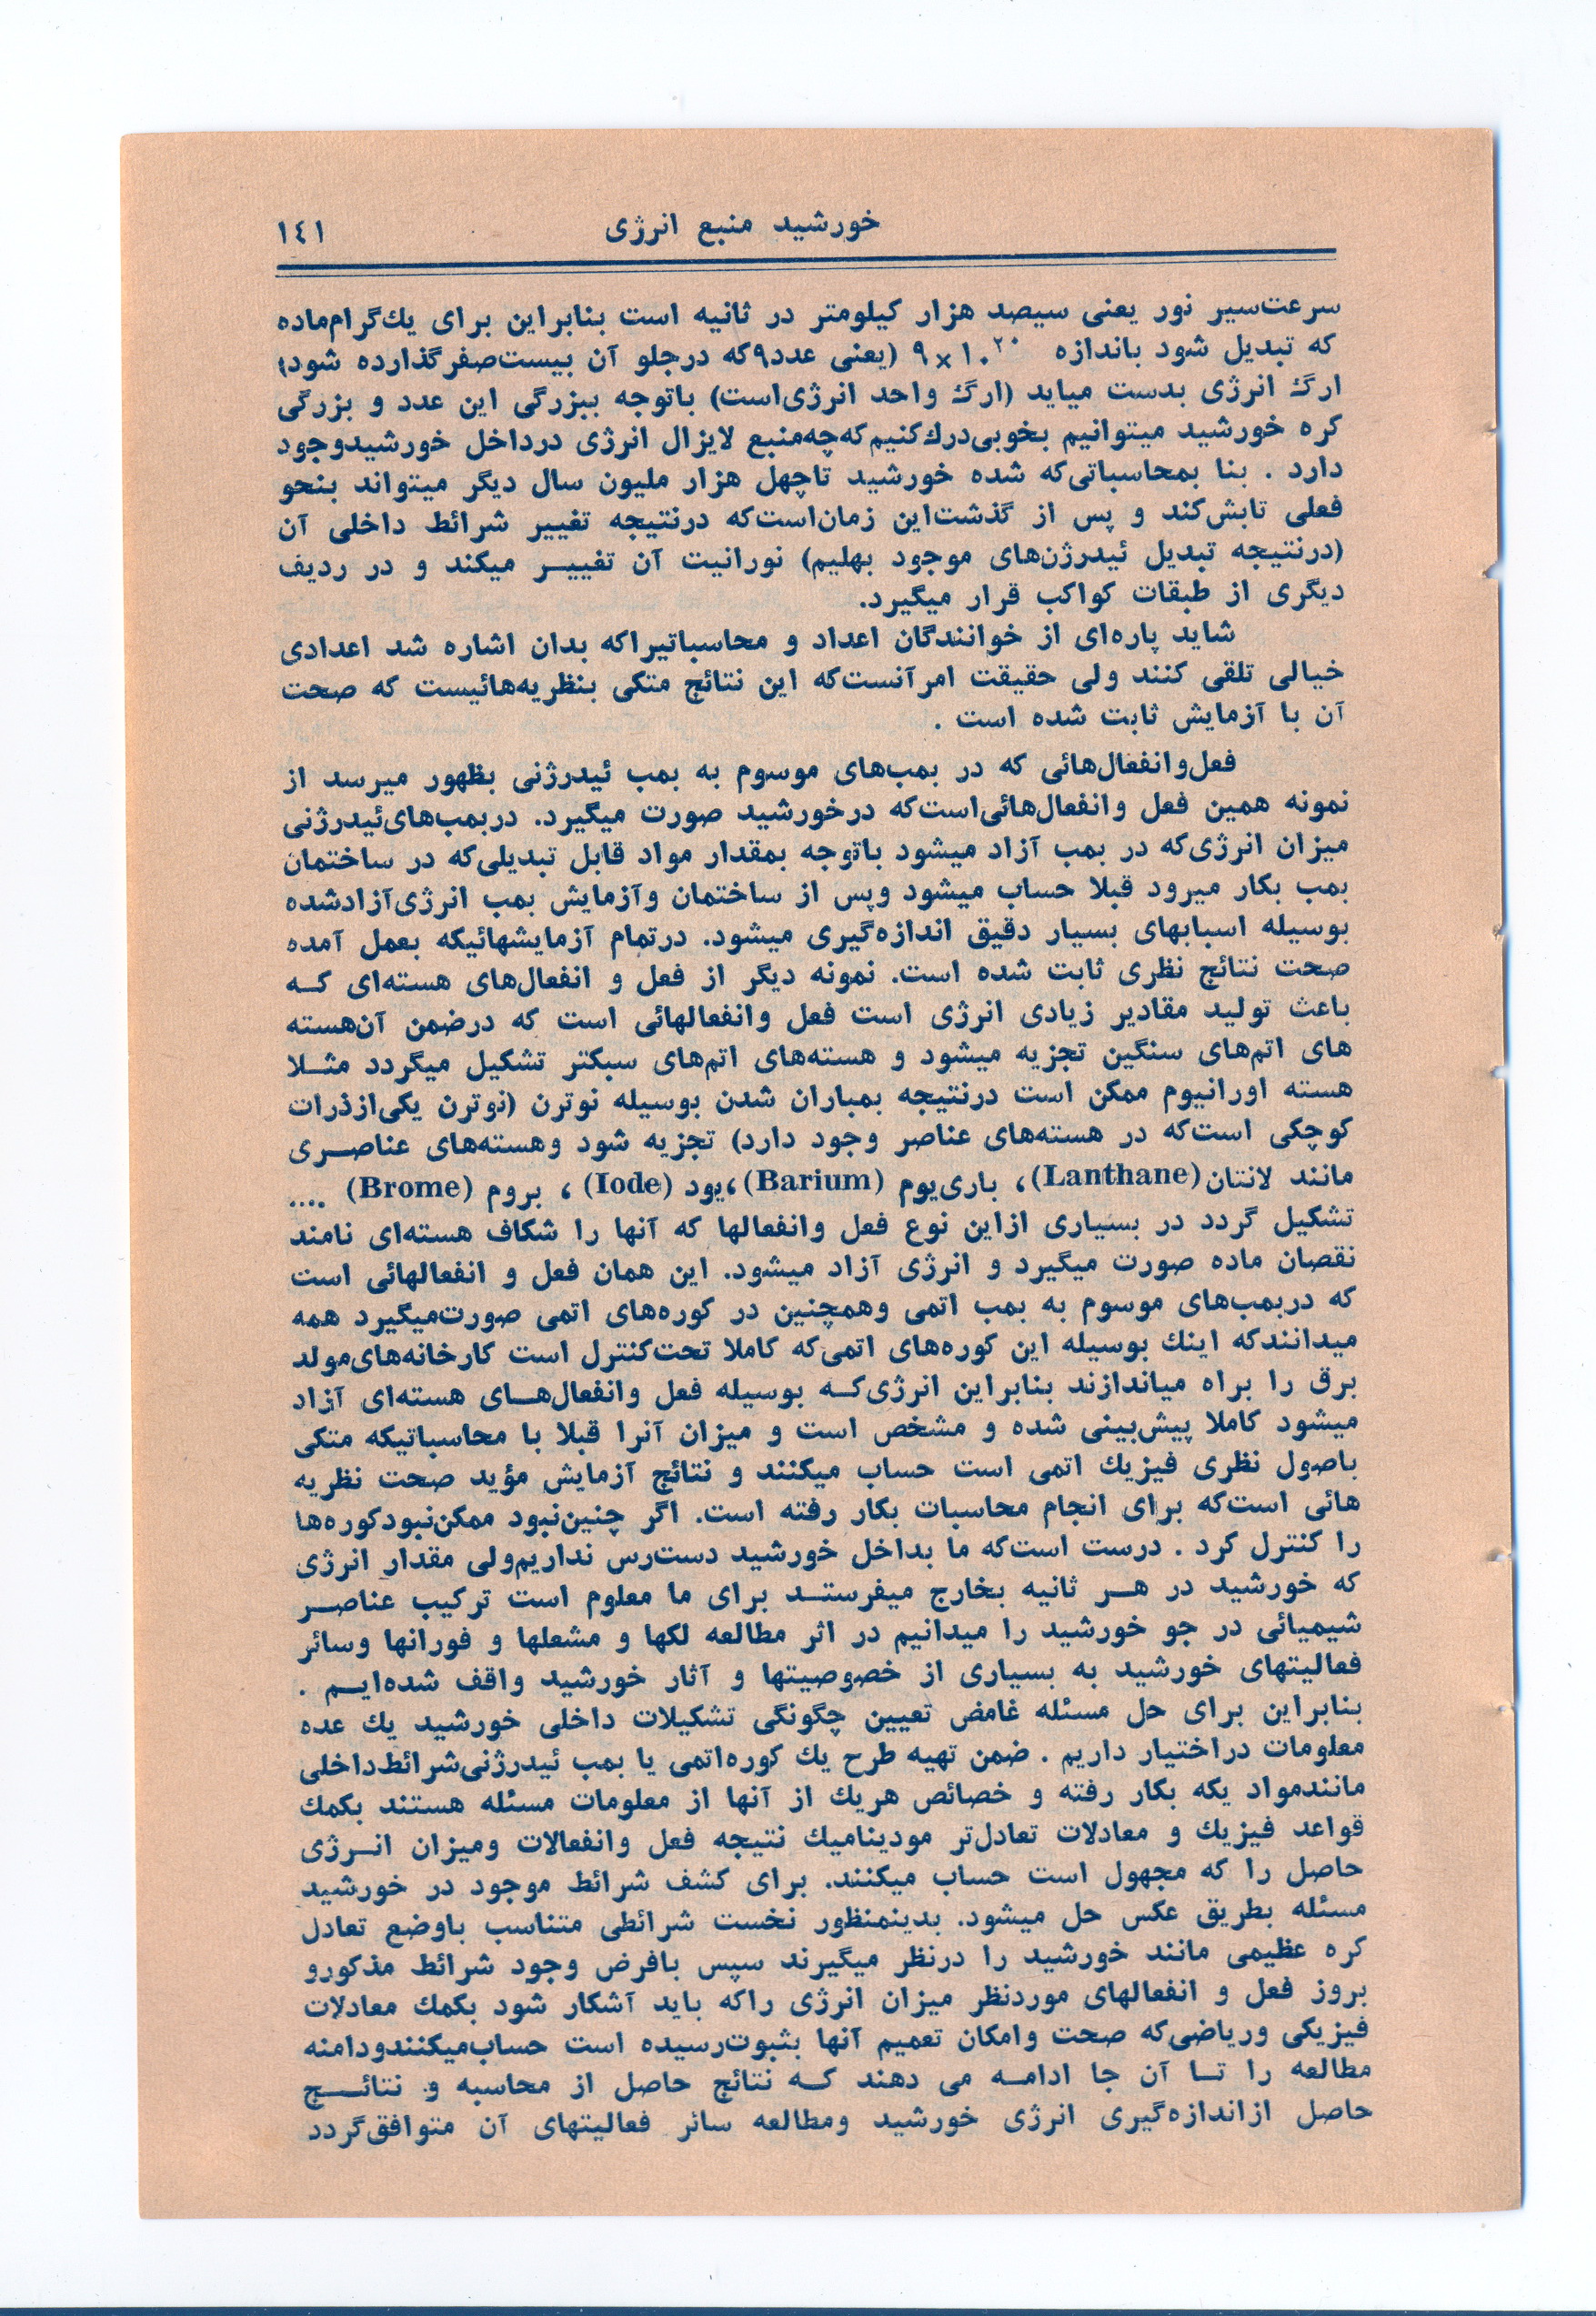 خورشید منبع انرژی
۱٤۱
سرعت‌سیر نور یعنی سیصد هزار کیلومتر در ثانیه است بنابراین برای یك‌گرام‌ماده
که تبدیل شود باندازه ۹×۱۰۲۰ (یعنی عدد۹که درجلو آن بیست‌صفر‌گذارده شود)
ارگ انرژی بدست میاید (ارگ واحد انرژی‌است) باتوجه ببزرگی این عدد و بزرگی
کره خورشید میتوانیم بخوبی‌درك‌کنیم‌که‌چه‌منبع لایزال انرژی درداخل خورشیدوجود
دارد . بنا بمحاسباتی‌که شده خورشید تاچهل هزار ملیون سال دیگر میتواند بنحو
فعلی تابش‌کند و پس از گذشت‌این زمان‌است‌که درنتیجه تغییر شرائط داخلی آن
(درنتیجه تبدیل ئیدرژن‌های موجود بهلیم) نورانیت آن تغییـر میکند و در ردیف
دیگری از طبقات کواکب قرار میگیرد.
شاید پاره‌ای از خوانندگان اعداد و محاسباتیراکه بدان اشاره شد اعدادی
خیالی تلقی کنند ولی حقیقت امرآنست‌که این نتائج متکی بنظریه‌هائیست که صحت
آن با آزمایش ثابت شده است .
فعل‌وانفعال‌هائی که در بمب‌های موسوم به بمب ئیدرژنی بظهور میرسد از
نمونه همین فعل وانفعال‌هائی‌است‌که درخورشید صورت میگیرد. دربمب‌های‌ئیدرژنی
میزان انرژی‌که در بمب آزاد میشود باتوجه بمقدار مواد قابل تبدیلی‌که در ساختمان
بمب بکار میرود قبلا حساب میشود وپس از ساختمان وآزمایش بمب انرژی‌آزادشده
بوسیله اسبابهای بسیار دقیق اندازه‌گیری میشود. درتمام آزمایشهائیکه بعمل آمده
صحت نتائج نظری ثابت شده است. نمونه دیگر از فعل و انفعال‌های هسته‌ای کـه
باعث تولید مقادیر زیادی انرژی است فعل وانفعالهائی است که درضمن آن‌هسته
های اتم‌های سنگین تجزیه میشود و هسته‌های اتم‌های سبکتر تشکیل میگردد مثـلا
هسته اورانیوم ممکن است درنتیجه بمباران شدن بوسیله نوترن (نوترن یکی‌ازذرات
کوچکی است‌که در هسته‌های عناصر وجود دارد) تجزیه شود وهسته‌های عناصـری
مانند لانتان(Lanthane)، باری‌یوم (Barium)،یود (Iode) ، بروم (Brome) ....
تشکیل گردد در بسیاری ازاین نوع فعل وانفعالها که آنها را شکاف هسته‌ای نامند
نقصان ماده صورت میگیرد و انرژی آزاد میشود. این همان فعل و انفعالهائی است
که دربمب‌های موسوم به بمب اتمی وهمچنین در کوره‌های اتمی صورت‌میگیرد همه
میدانندکه اینك بوسیله این کوره‌های اتمی‌که کاملا تحت‌کنترل است کارخانه‌های‌مولد
برق را براه میاندازند بنابراین انرژی‌کـه بوسیله فعل وانفعال‌هـای هسته‌ای آزاد
میشود کاملا پیش‌بینی شده و مشخص است و میزان آنرا قبلا با محاسباتیکه متکی
باصول نظری فیزیك اتمی است حساب میکنند و نتائج آزمایش مؤید صحت نظریه
هائی است‌که برای انجام محاسبات بکار رفته است. اگر چنین‌نبود ممکن‌نبودکوره‌ها
را کنترل کرد . درست است‌که ما بداخل خورشید دست‌رس نداریم‌ولی مقدار انرژی
که خورشید در هـر ثانیه بخارج میفرستـد برای ما معلوم است ترکیب عناصـر
شیمیائی در جو خورشید را میدانیم در اثر مطالعه لکها و مشعلها و فورانها وسائر
فعالیتهای خورشید به بسیاری از خصوصیتها و آثار خورشید واقف شده‌ایـم .
بنابراین برای حل مسئله غامض تعیین چگونگی تشکیلات داخلی خورشید یك عده
معلومات دراختیار داریم . ضمن تهیه طرح یك کوره‌اتمی یا بمب ئیدرژنی‌شرائط‌داخلی
مانندمواد یکه بکار رفته و خصائص هریك از آنها از معلومات مسئله هستند بکمك
قواعد فیزیك و معادلات تعادل‌تر مودینامیك نتیجه فعل وانفعالات ومیزان انـرژی
حاصل را که مجهول است حساب میکنند. برای کشف شرائط موجود در خورشید
مسئله بطریق عکس حل میشود. بدینمنظور نخست شرائطی متناسب باوضع تعادل
کره عظیمی مانند خورشید را درنظر میگیرند سپس بافرض وجود شرائط مذکورو
بروز فعل و انفعالهای موردنظر میزان انرژی راکه باید آشکار شود بکمك معادلات
فیزیکی وریاضی‌که صحت وامکان تعمیم آنها بثبوت‌رسیده است حساب‌میکنندودامنه
مطالعه را تـا آن جا ادامـه می دهند کـه نتائج حاصل از محاسبه و نتائـج
حاصل ازاندازه‌گیری انرژی خورشید ومطالعه سائر فعالیتهای آن متوافق‌گردد